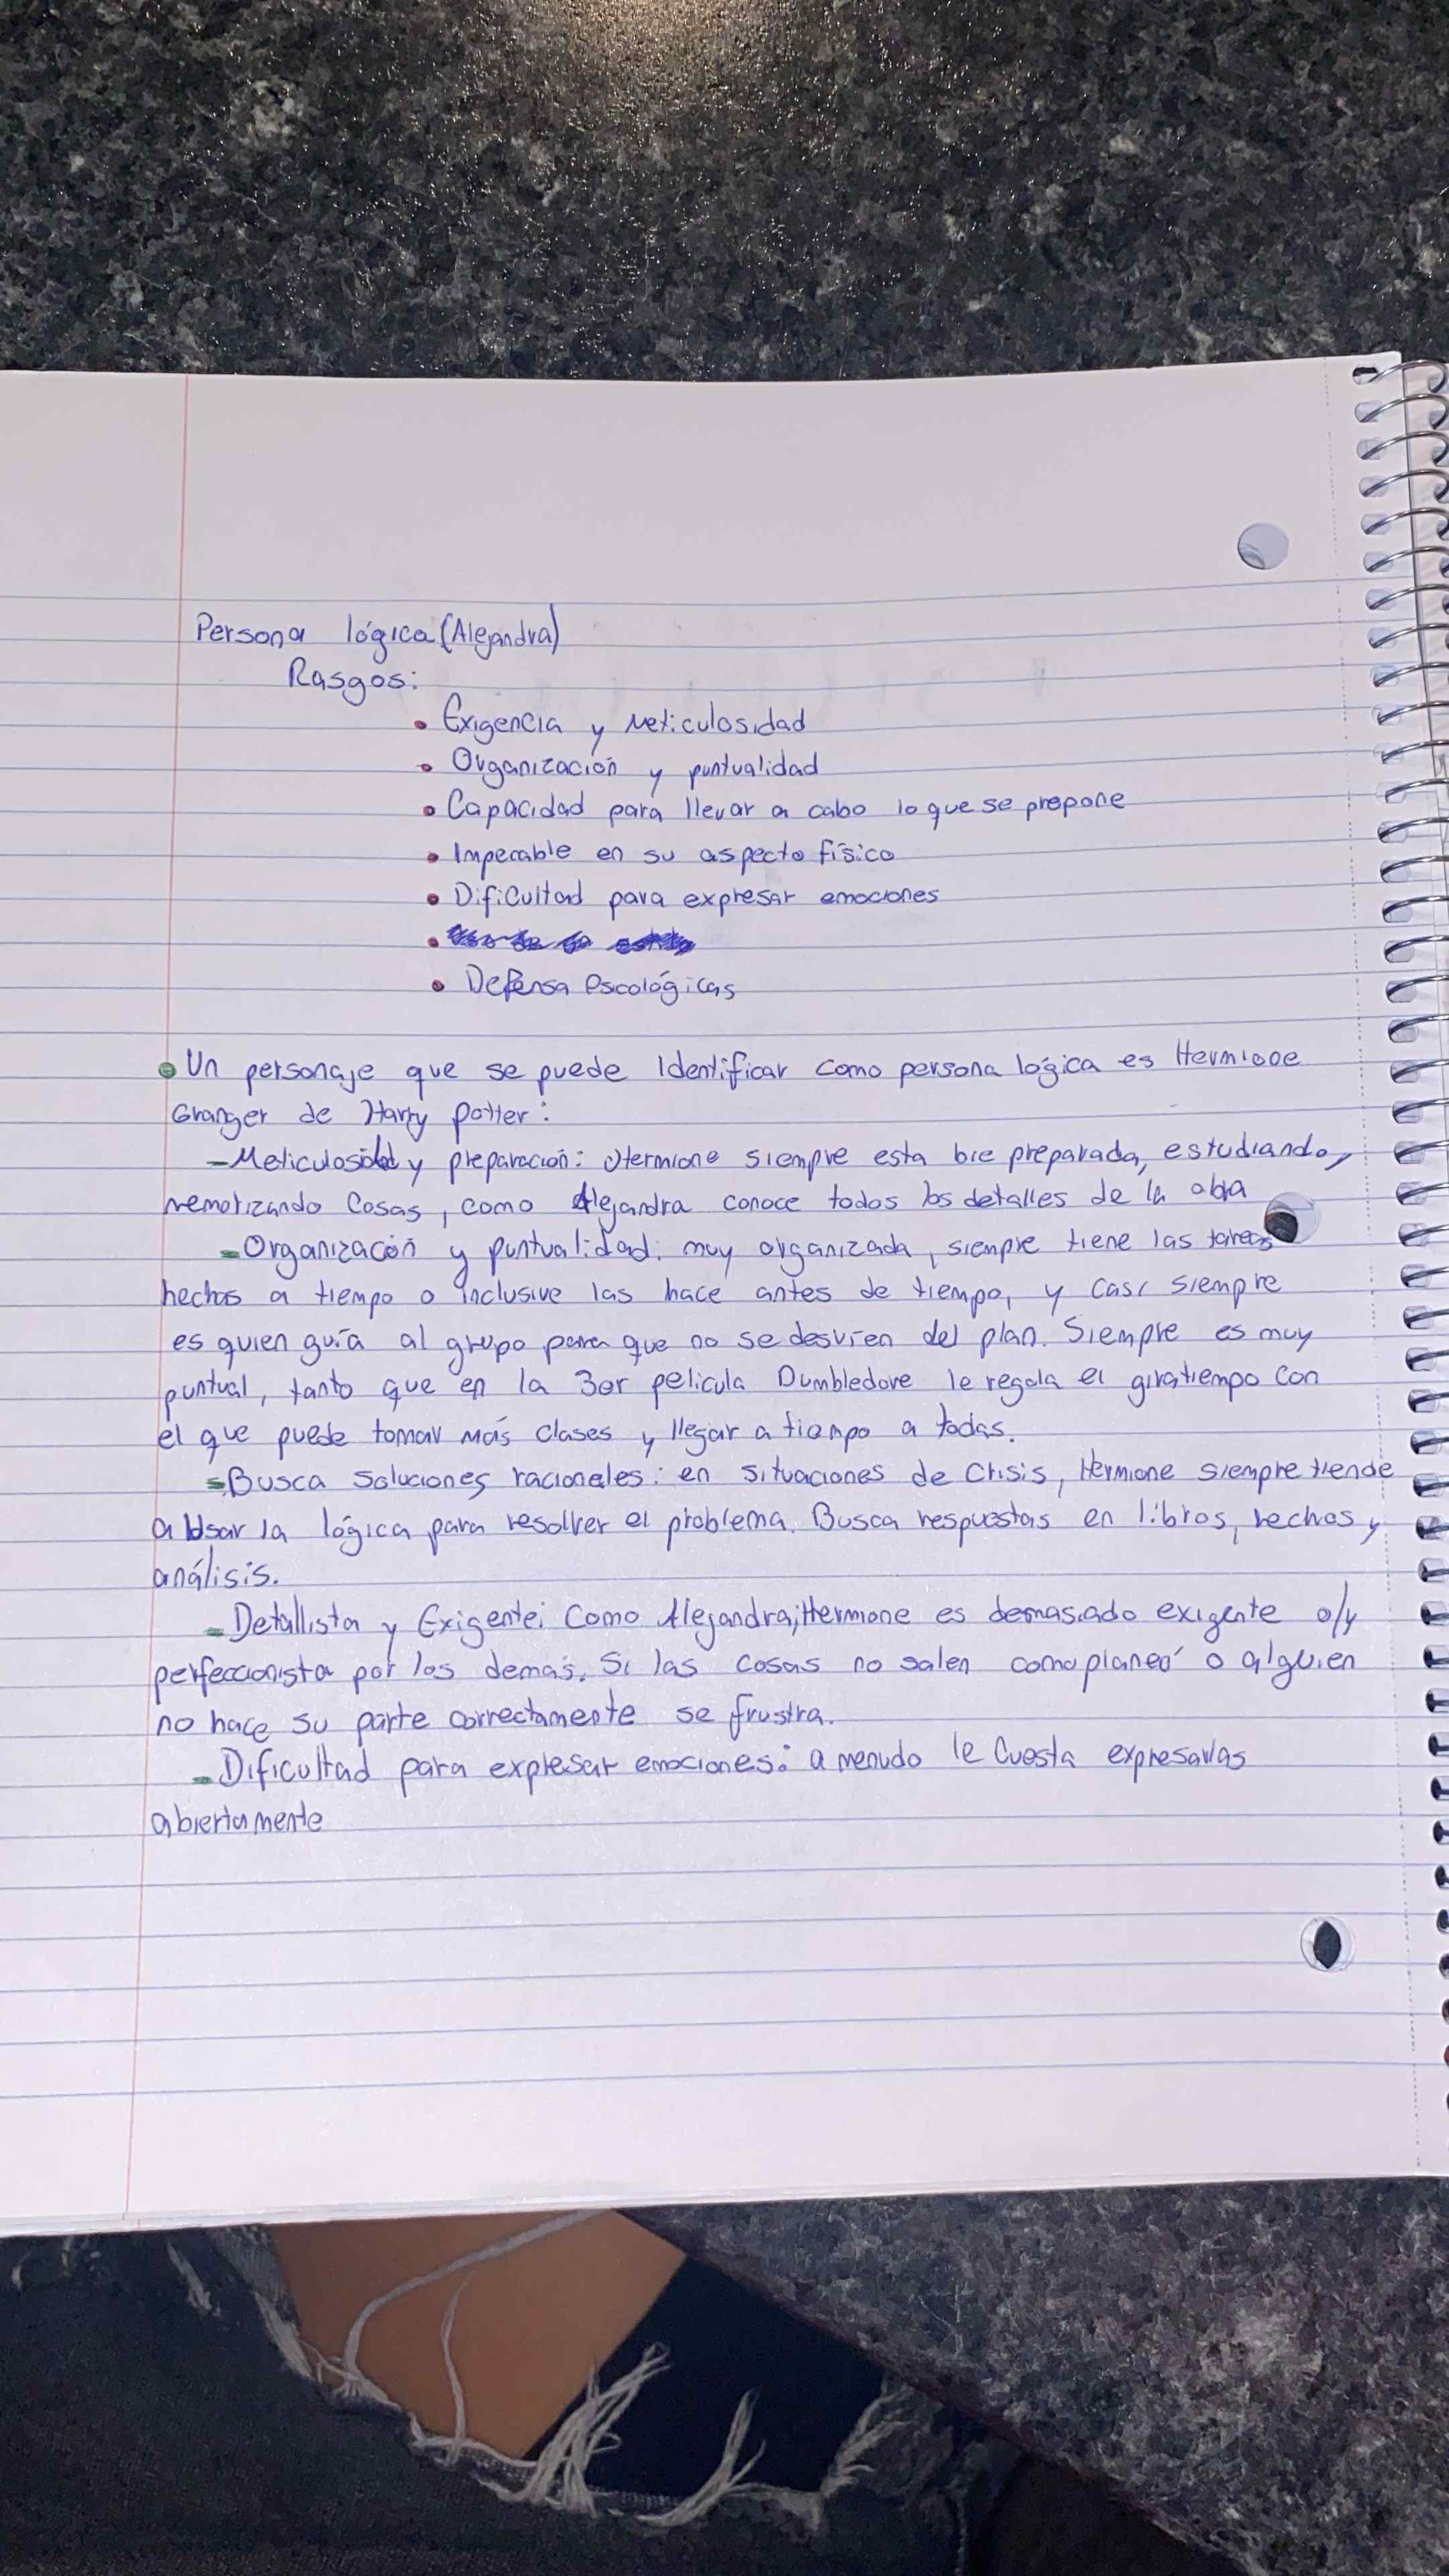 Persona lógica (Alejandra)
Rasgos:
• Exigencia y Meticulosidad
• Organización y puntualidad
• Capacidad para llevar a cabo lo que se propone
• Impecable en su aspecto físico
• Dificultad para expresar emociones
•
• Defensa Psicológicas
• Un personaje que se puede Identificar como persona lógica es Hermione
Granger de Harry Potter:
- Meticulosidad y preparación: Hermione siempre esta bie preparada, estudiando,
memorizando Cosas, como Alejandra conoce todos los detalles de la obra
- Organización y puntualidad: muy organizada, siempre tiene las tareas
hechas a tiempo o inclusive las hace antes de tiempo, y casi siempre
es quien guía al grupo para que no se desvíen del plan. Siempre es muy
puntual, tanto que en la 3er pelicula Dumbledore le regala el giratiempo con
el que puede tomar más clases y llegar a tiempo a todas.
- Busca soluciones racionales: en situaciones de crisis, Hermione siempre tiende
a Usar la lógica para resolver el problema. Busca respuestas en libros, hechos y
análisis.
- Detallista y Exigente: Como Alejandra, Hermione es demasiado exigente o/y
perfeccionista por los demás. Si las cosas no salen como planeó o alguien
no hace su parte correctamente se frustra.
- Dificultad para expresar emociones: a menudo le Cuesta expresarlas
abiertamente